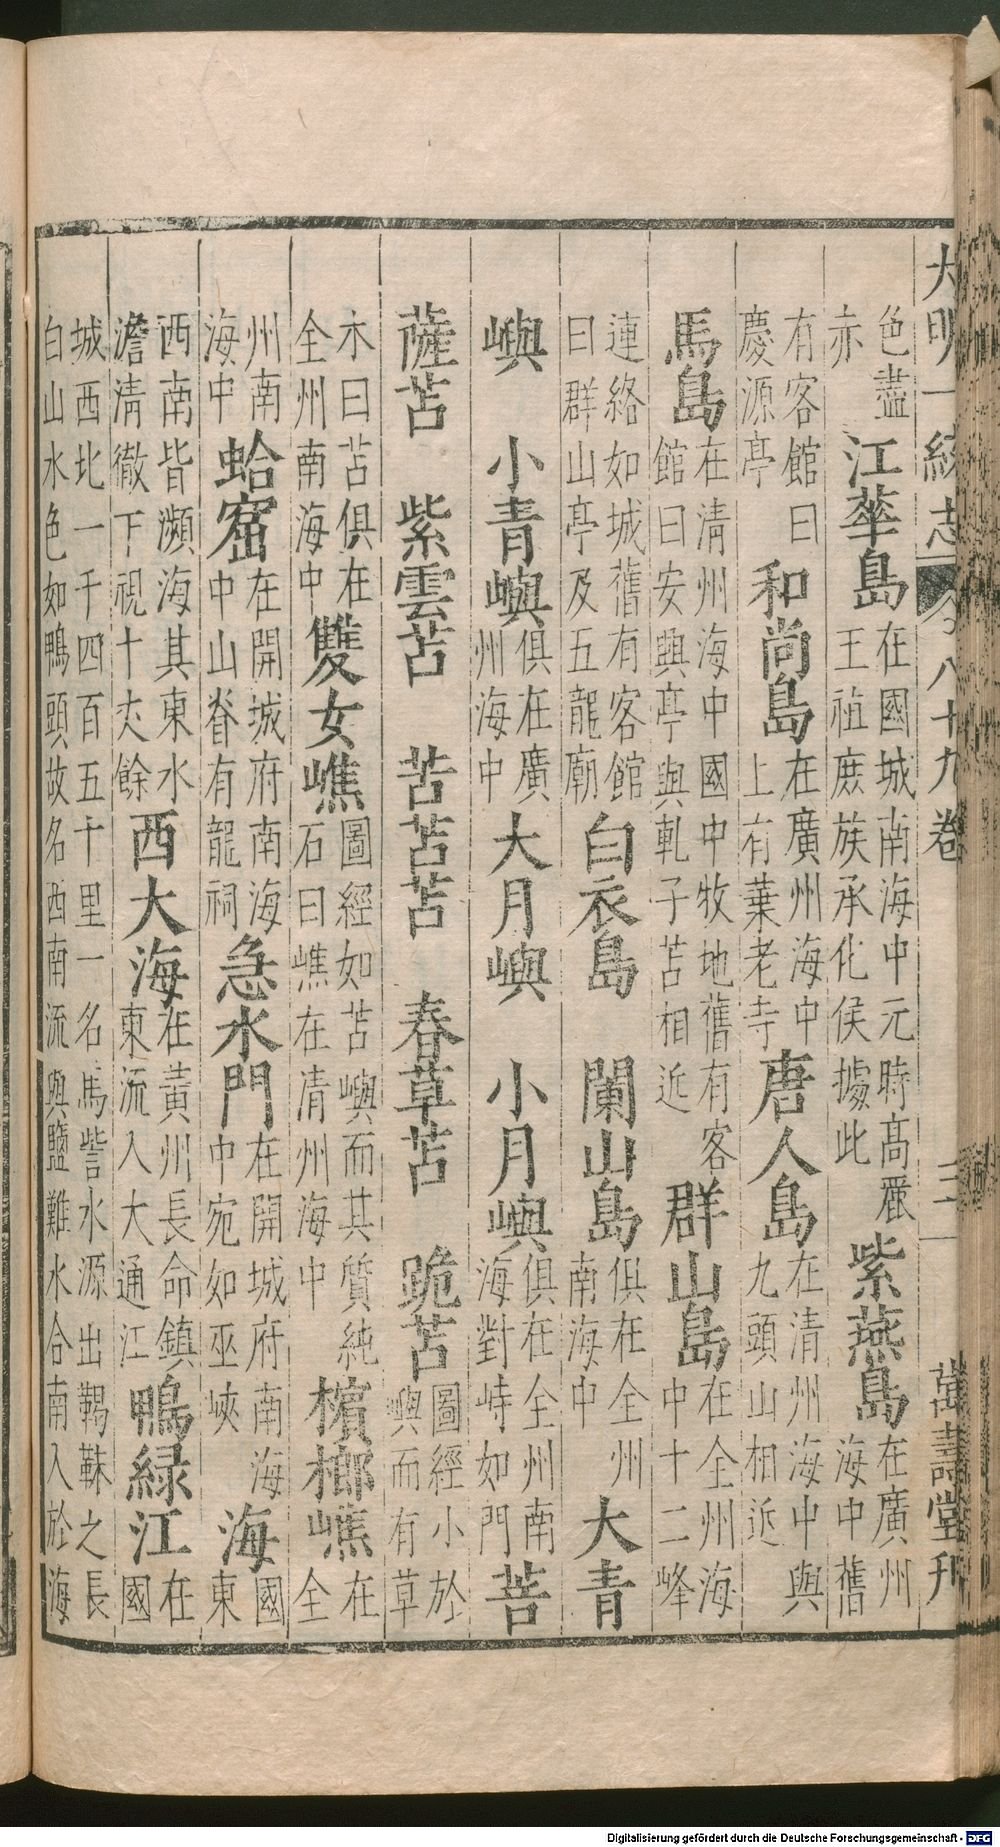 大明一統志 八十九卷 三 萬壽堂刊
色盡赤 江華島 在國城南海中元時高麗王祖庶族承化侯據此 紫燕島 在廣州海中舊
有客館曰慶源亭 和尚島 在廣州海中上有葉老寺 唐人島 在清州海中與九頭山相近
馬島 在清州海中國中牧地舊有客館曰安興亭與軋子苫相近 群山島 在全州海中十二峰
連絡如城舊有客館曰群山亭及五龍廟 白衣島 闌山島 俱在全州南海中 大青
嶼 小青嶼 俱在廣州海中 大月嶼 小月嶼 俱在全州南海對峙如門 苦
薩苫 紫雲苫 苦苫苫 春草苫 跪苫 圖經小於嶼而有草
木曰苫俱在全州南海中 雙女嶕 圖經如苫嶼而其質純石曰嶕在清州海中 檳榔嶕 在全
州南海中 蛤窟 在開城府南海中山脊有龍祠 急水門 在開城府南海中宛如巫峽 海 國東
西南皆瀕海其東水澹清徹下視十丈餘 西大海 在黃州長命鎮東流入大通江 鴨綠江 在國
城西北一千四百五十里一名馬訾水源出鞨靺之長白山水色如鴨頭故名西南流與鹽難水合南入於海
Digitalisierung gefördert durch die Deutsche Forschungsgemeinschaft - DFG